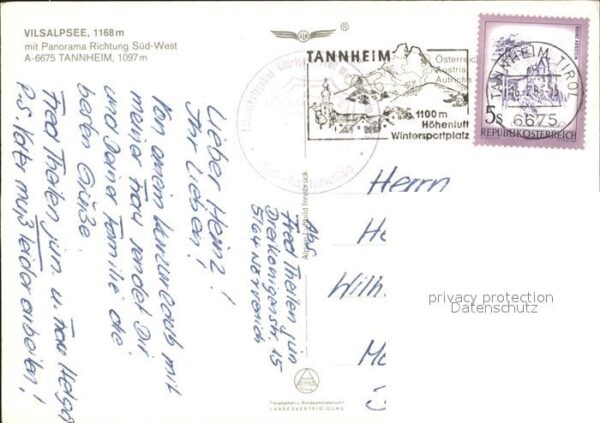 VILSALPSEE, 1168 m
mit Panorama Richtung Süd-West
A-6675 TANNHEIM, 1097 m
®
Österreich
Austria
Autriche
TANNHEIM
1100 m
Höhenluft
Wintersportplatz
TANNHEIM, TIROL
6675
5s
REPUBLIK ÖSTERREICH
Lieber Heinz!
Ihr Lieben!
Von einem Kurzurlaub mit
meiner Frau sendet Dir
und Deiner Familie die
besten Grüße
Fred Theilen jun. u. Frau Helga
P.S. Vater muß leider arbeiten!
Abs.
Fred Theilen jun
Dreikönigenstr. 15
5164 Nörvenich
Herrn
He
Wilh
privacy protection
Datenschutz
Freigegeben v. Bundesministerium f.
LANDESVERTEIDIGUNG